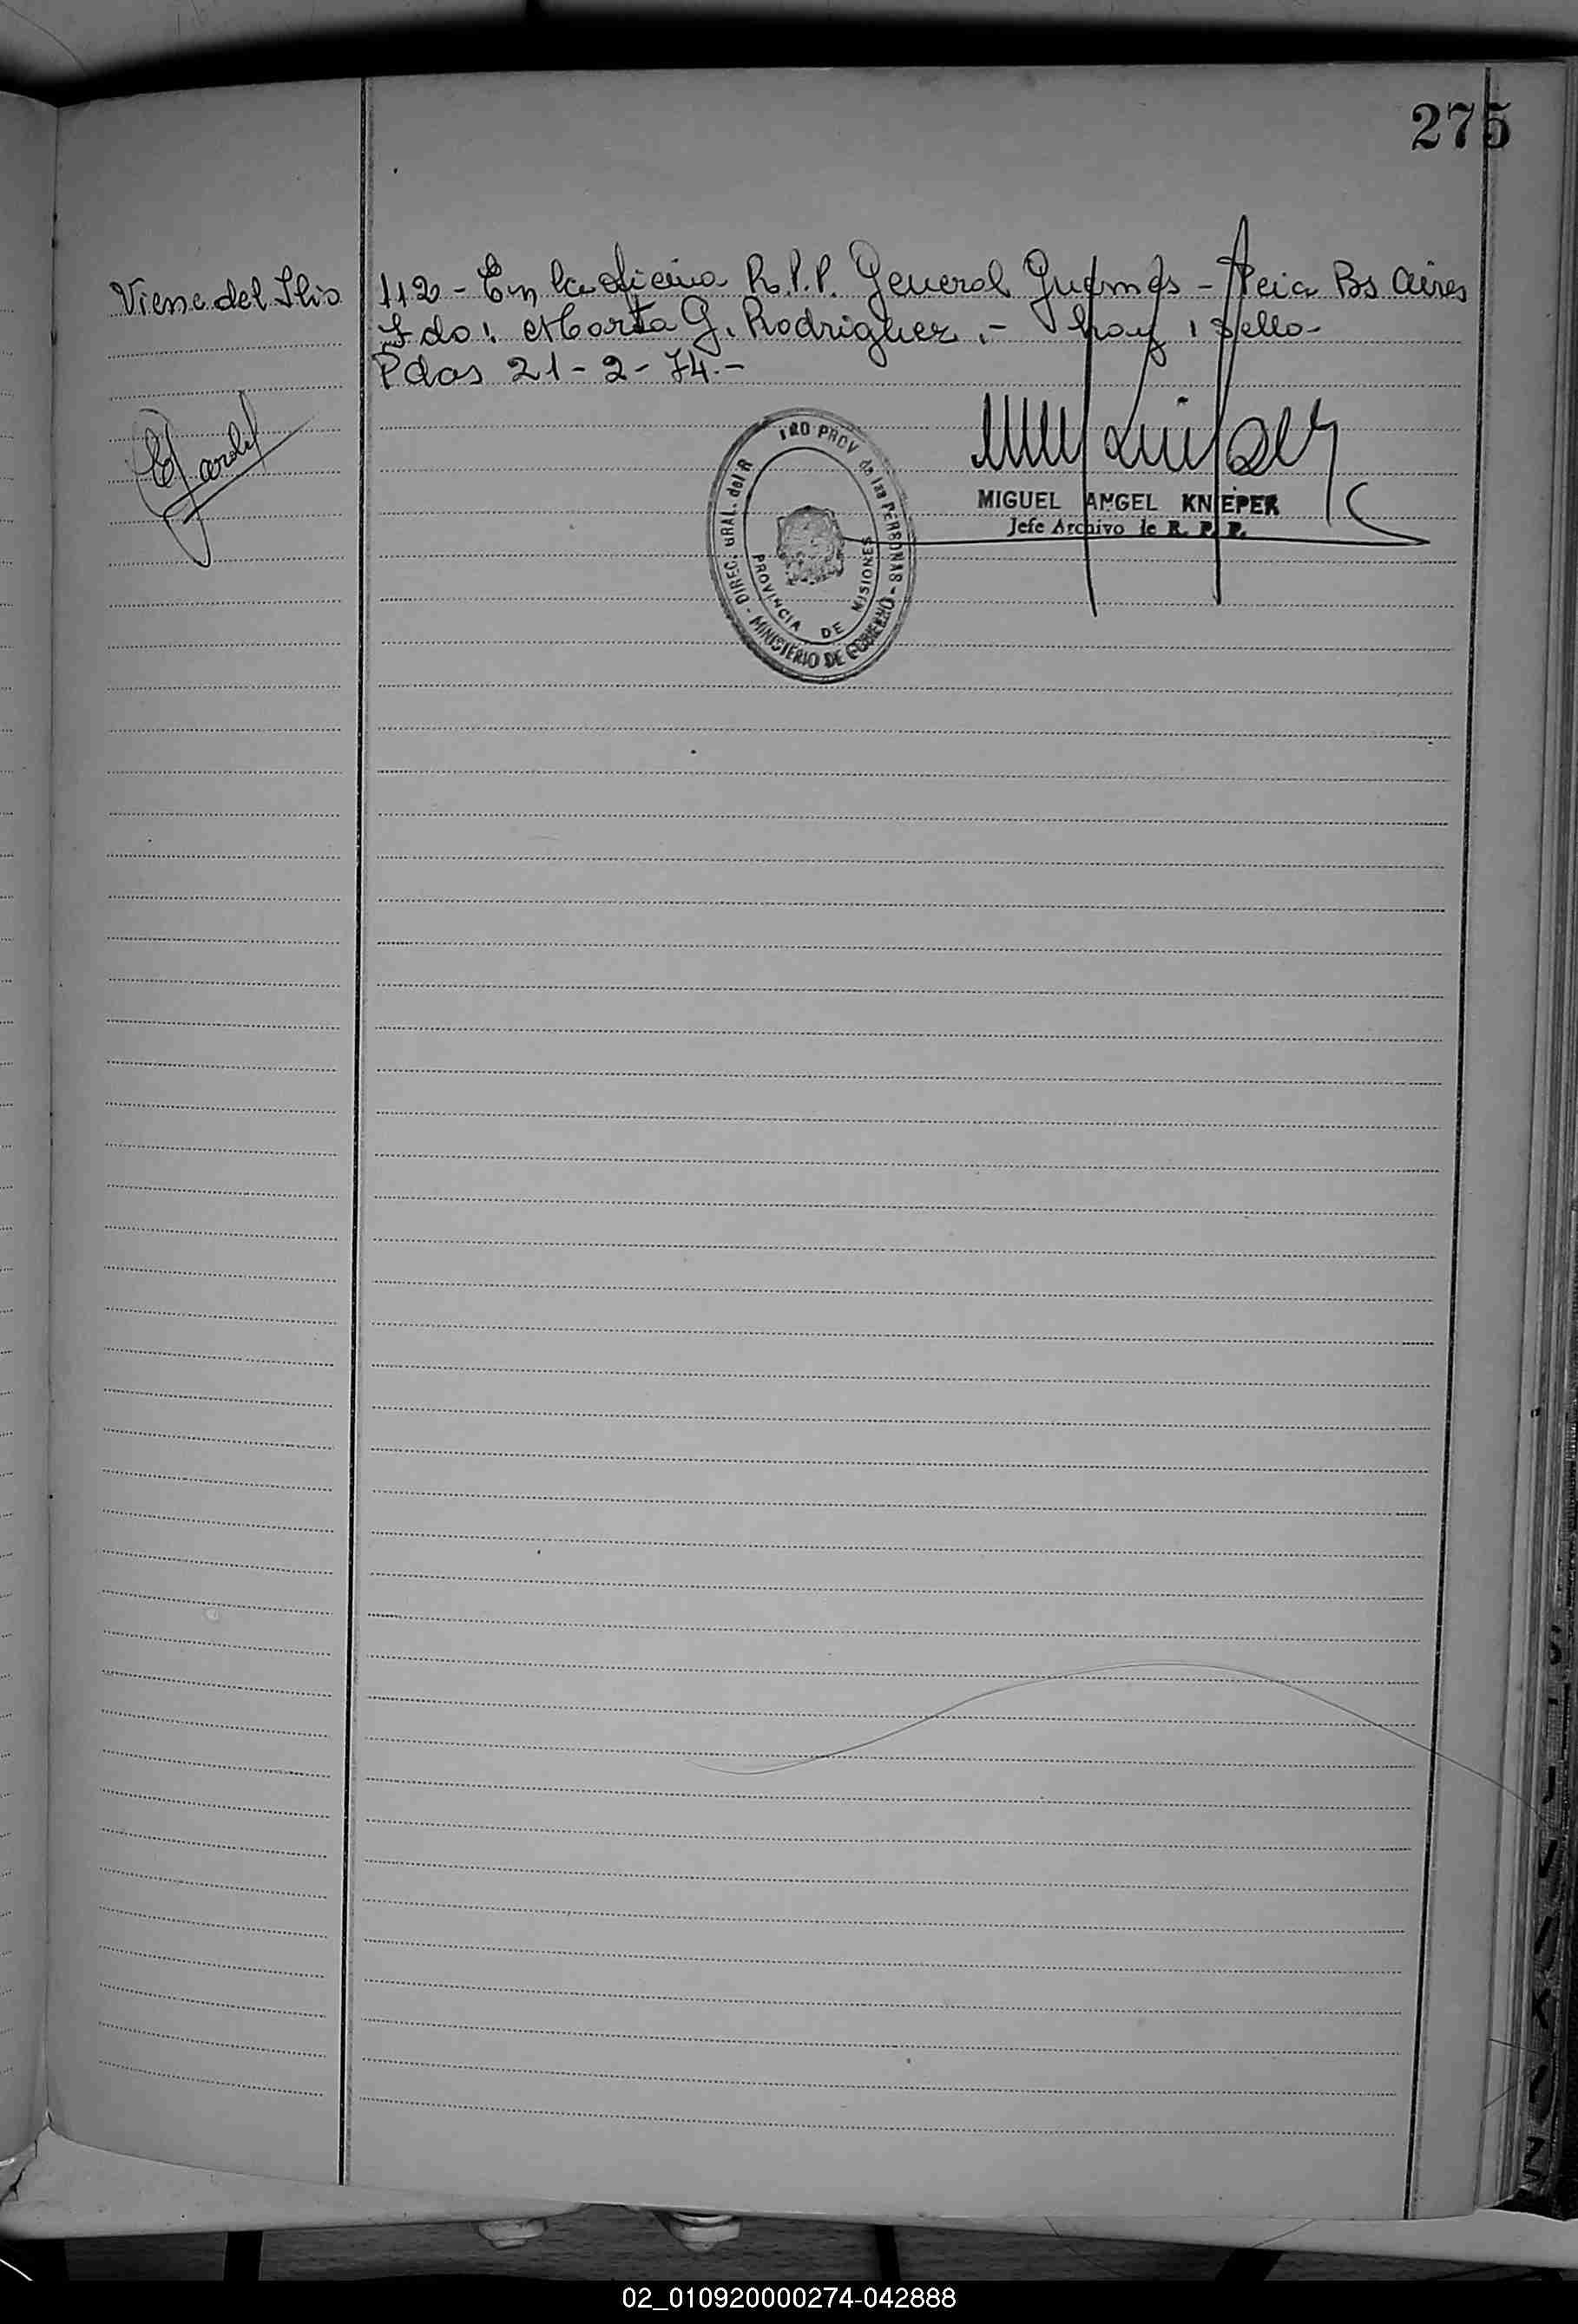 275
Viene del Flio 112 - En la oficina R.P.P. General Guemes - Pcia Bs Aires
Fdo: Marta G. Rodriguez .- hay 1 sello -
Pdas 21 - 2 - 74.-
MIGUEL ANGEL KNIEPER
Jefe Archivo de R. P. P.
DIREC. GRAL. del R TRO PROV de las PERSONAS - MINISTERIO DE GOBIERNO -
PROVINCIA DE MISIONES
02_010920000274-042888